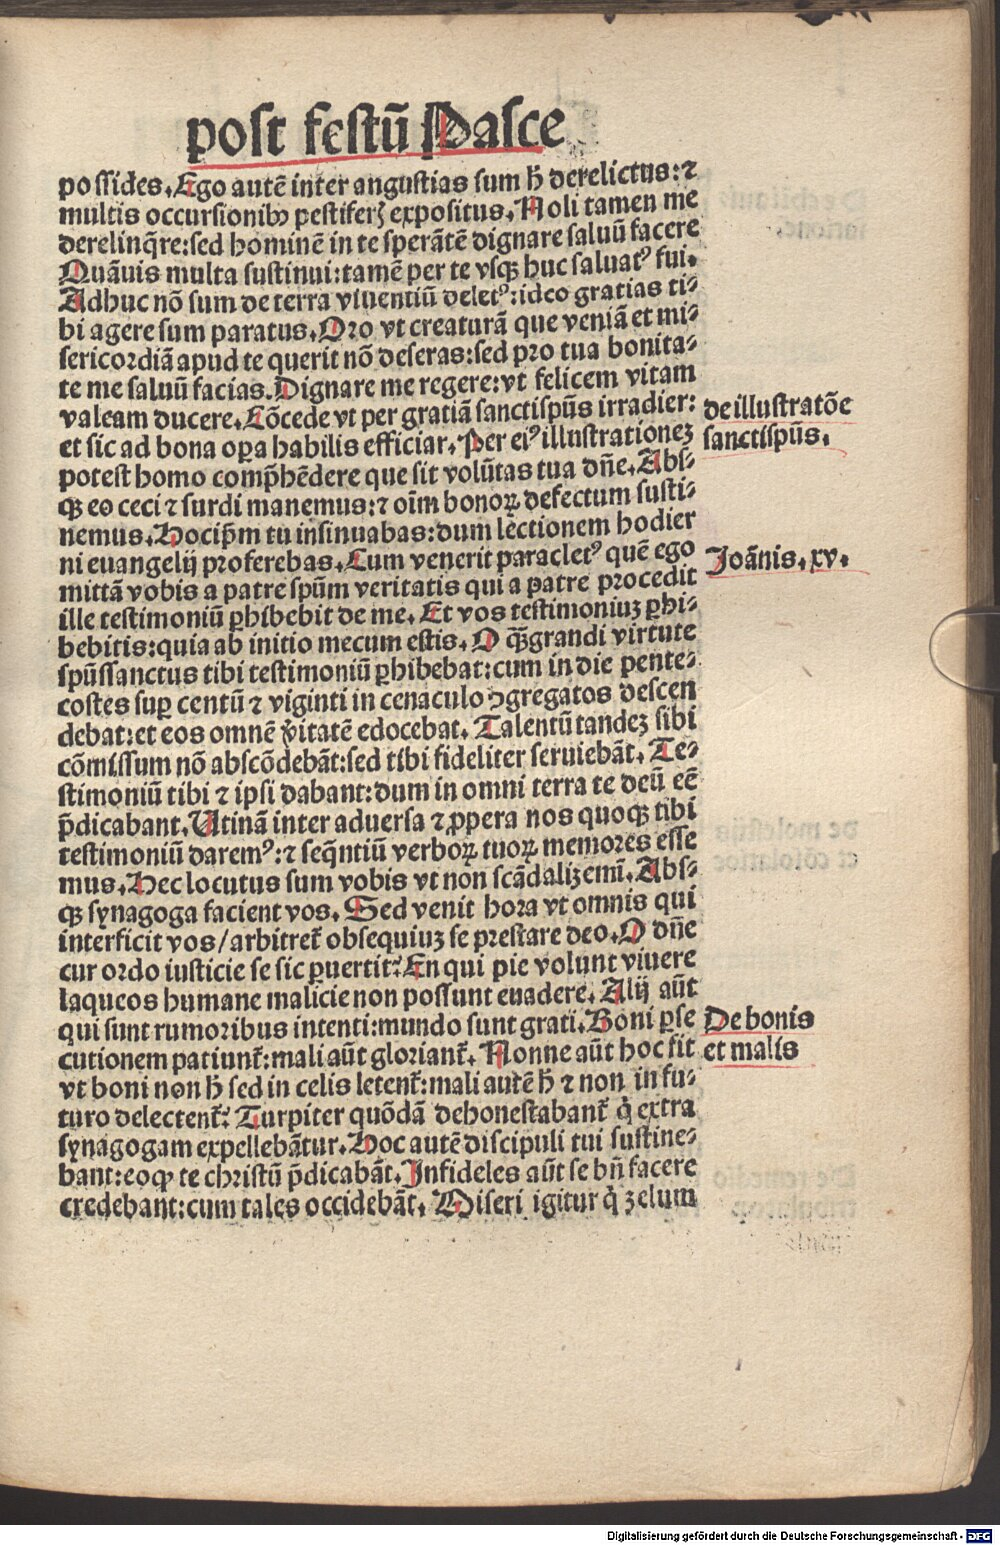 post festū Pasce
possides. Ego autē inter angustias sum h̄ derelictus: ⁊
multis occursionibꝰ pestiferꝫ expositus. Noli tamen me
derelinq̄re: sed hominē in te sperātē dignare saluū facere
Quāuis multa sustinui: tamē per te vsqꝫ huc saluatꝰ fui.
Adhuc nō sum de terra viuentiū deletꝰ: ideo gratias ti⸗
bi agere sum paratus. Oro vt creaturā que veniā et mi⸗
sericordiā apud te querit nō deseras: sed pro tua bonita⸗
te me saluū facias. Dignare me regere: vt felicem vitam
valeam ducere. Cōcede vt per gratiā sanctispūs irradier:
et sic ad bona oꝑa habilis efficiar. Per eiꝰ illustrationeꝫ
potest homo comp̄hēdere que sit volūtas tua dn̄e. Abs⸗
qꝫ eo ceci ⁊ surdi manemus: ⁊ oīm bonoꝝ defectum susti⸗
nemus. Hocip̄m tu insinuabas: dum lectionem hodier
ni euangelij proferebas. Cum venerit paracletꝰ quē ego
mittā vobis a patre spūm veritatis qui a patre procedit
ille testimoniū ꝑhibebit de me. Et vos testimoniuꝫ ꝑhi⸗
bebitis: quia ab initio mecum estis. O qꝫ̄ grandi virtute
spūssanctus tibi testimoniū ꝑhibebat: cum in die pente⸗
costes suꝑ centū ⁊ viginti in cenaculo ꝯgregatos descen
debat: et eos omnē v̓itatē edocebat. Talentū tandeꝫ sibi
cōmissum nō abscōdebāt: sed tibi fideliter seruiebāt. Te⸗
stimoniū tibi ⁊ ipsi dabant: dum in omni terra te deū eē
p̄dicabant. Utinā inter aduersa ⁊ ꝓspera nos quoqꝫ tibi
testimoniū daremꝰ: ⁊ seq̄ntiū verboꝝ tuoꝝ memores esse
mus. Hec locutus sum vobis vt non scādalizeminī. Abs⸗
qꝫ synagoga facient vos. Sed venit hora vt omnis qui
interficit vos/ arbitret̄ obsequiuꝫ se prestare deo. O dn̄e
cur ordo iusticie se sic ꝑuertit? En qui pie volunt viuere
laqueos humane malicie non possunt euadere. Alij aūt
qui sunt rumoribus intenti: mundo sunt grati. Boni ꝑse
cutionem patiunt̄: mali aūt gloriant̄. Nonne aūt hoc fit
vt boni non h̄ sed in celis letent̄: mali autē h̄ ⁊ non in fu⸗
turo delectent̄? Turpiter quōdā dehonestabant̄ q̓ extra
synagogam expellebātur. Hoc autē discipuli tui sustine⸗
bant: eoqꝫ te christū p̄dicabāt. Infideles aūt se bn̄ facere
credebant: cum tales occidebāt. Miseri igitur q̓ zelum
de illustratōe
sanctispūs.
Joānis. xv.
De bonis
et malis
Digitalisierung gefördert durch die Deutsche Forschungsgemeinschaft - DFG